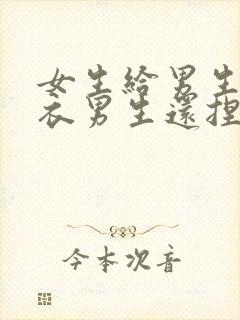 女生給男生
衣男生還捏
今本次音